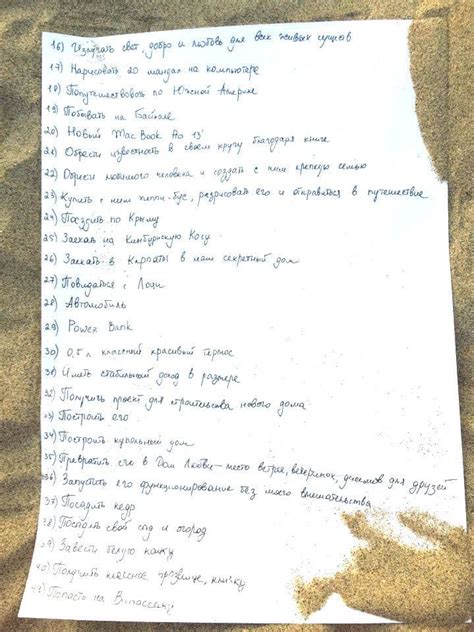 16) Излучать свет, добро и любовь для всех живых существ
17) Нарисовать 20 мандал на компьютере
18) Попутешествовать по Южной Америке
19) Побывать на Байкале
20) Новый MacBook Pro 13'
21) Обрести известность в своем кругу благодаря книге
22) Обрести любимого человека и создать с ним крепкую семью
23) Купить с ним хиппи-бус, разрисовать его и отправиться в путешествие
24) Поездить по Крыму
25) Заехать на Кинбурнскую Косу
26) Заехать в Карпаты в наш секретный дом
27) Повидаться с
28) Автомобиль
29) Power Bank
30) 0,5 л классный красивый термос
31) Иметь стабильный доход в размере
32) Получить проект для строительства нового дома
33) Построить его
34) Построить купольный дом
35) Превратить его в Дом Любви - место встреч, вечеринок, для друзей
36) Запустить его функционирование без моего вмешательства
37) Посадить кедр
38) свой сад и огород
39) Завести белую кошку
40) Получить классное прозвище, кличку
41) Попасть на